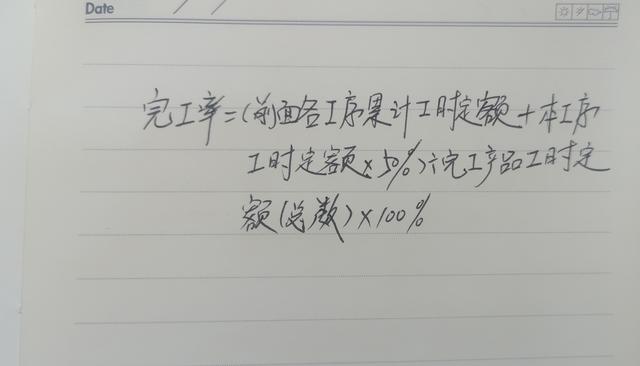 Date
完工率=(前面各工序累计工时定额+本工序
工时定额×50%)÷完工产品工时定
额(总数)×100%